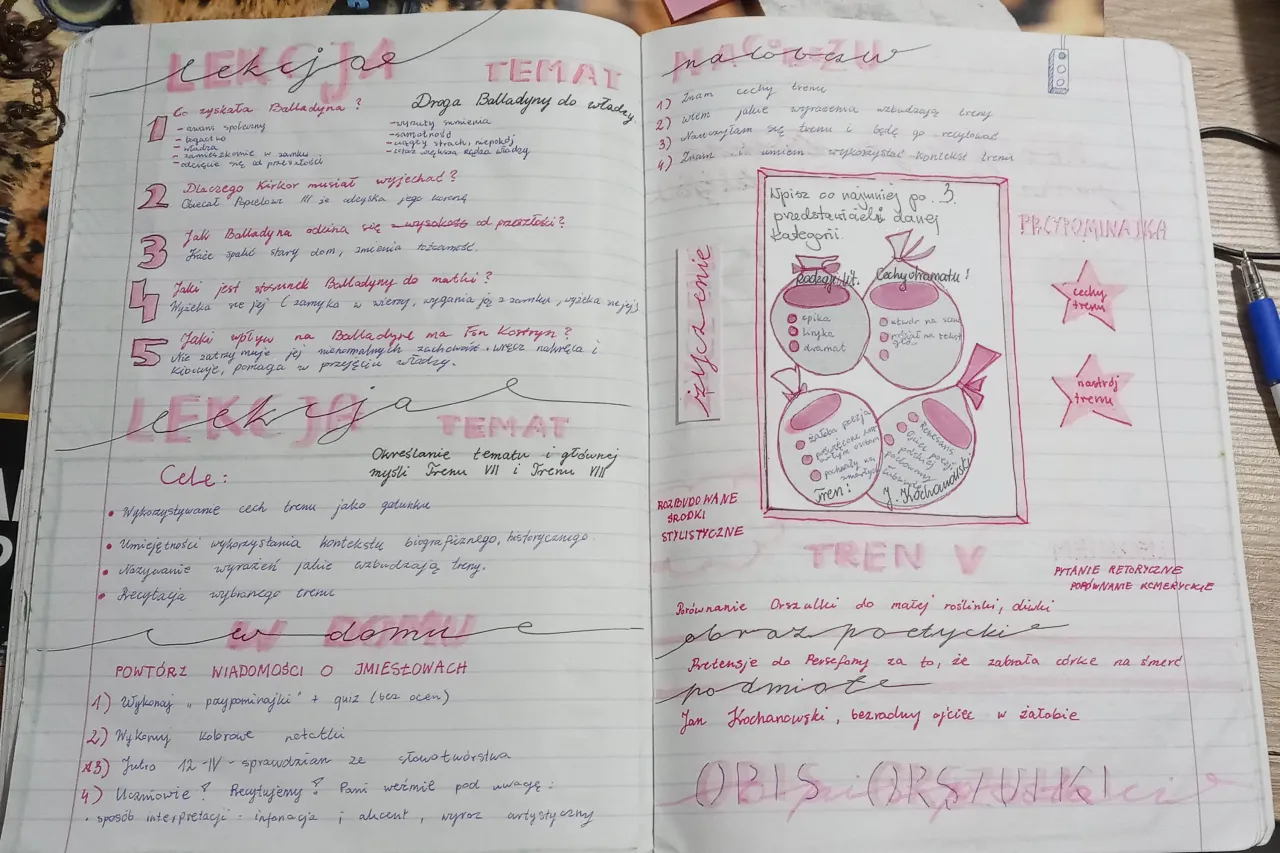 LEKCJA
lekcja
TEMAT
Droga Balladyny do władzy
1 Co zyskała Balladyna?
- awans społeczny
- bogactwo
- władza
- zamieszkanie w zamku
- odcięcie się od przeszłości
- wyrzuty sumienia
- samotność
- ciągły strach, niepokój
- coraz większa żądza władzy
2 Dlaczego Kirkor musiał wyjechać?
Obiecał Popielowi III że odzyska jego koronę
3 Jak Balladyna odcina się wysokość od przeszłości?
Każe spalić stary dom, zmienia tożsamość.
4 Jaki jest stosunek Balladyny do matki?
Wyżeka się jej (zamyka w wierzy, wygania ją z zamku, wyżeka się jej)
5 Jaki wpływ na Balladynę ma Fon Kostryn?
Nie zatrzymuje jej nienormalnych zachowań, wręcz nakręca i
kieruje, pomaga w przejęciu władzy.
LEKCJA
lekcja
TEMAT
Określanie tematu i głównej
myśli Trenu VII i Trenu VIII
Cele:
• Wykorzystywanie cech trenu jako gatunku
• Umiejętności wykorzystania kontekstu biograficznego, historycznego
• Nazywanie wyrażeń jakie wzbudzają treny.
• Recytacja wybranego trenu
W DOMU
w domu
POWTÓRZ WIADOMOŚCI O IMIESŁOWACH
1) Wykonaj „przypominajki" + quiz (bez ocen)
2) Wykonuj kolorowe notatki
*3) Jutro 12-IV - sprawdzian ze słowotwórstwa
4) Uczniowie! Recytujemy! Pani weźmie pod uwagę:
• sposób interpretacji - intonacja i akcent, wyraz artystyczny
NACOBEZU
nacobezu
1) Znam cechy trenu
2) wiem jakie wyrażenia wzbudzają treny
3) Nauczyłam się trenu i będę go recytować
4) Znam i umiem wykorzystać kontekst trenu
życzenie
Wpisz co najmniej po 3.
przedstawicieli danej
kategorii.
Rodzaje lit.
epika
liryka
dramat
Cechy dramatu!
utwór na scenę
podział na tekst
Tren!
żałoba poezja
poświęcone
J. Kochanowski
Renesans
Ojciec poezji
polskiej
PRZYPOMINAJKA
cechy
trenu
nastrój
trenu
ROZBUDOWANE
ŚRODKI
STYLISTYCZNE
TREN V
PYTANIE RETORYCZNE
PORÓWNANIE HOMERYCKIE
Porównanie Orszulki do małej roślinki, oliwki
obraz poetycki
Pretensje do Persefony za to, że zabrała córkę na śmierć
podmiot
Jan Kochanowski, bezradny ojciec w żałobie
OPIS ORSZULKI